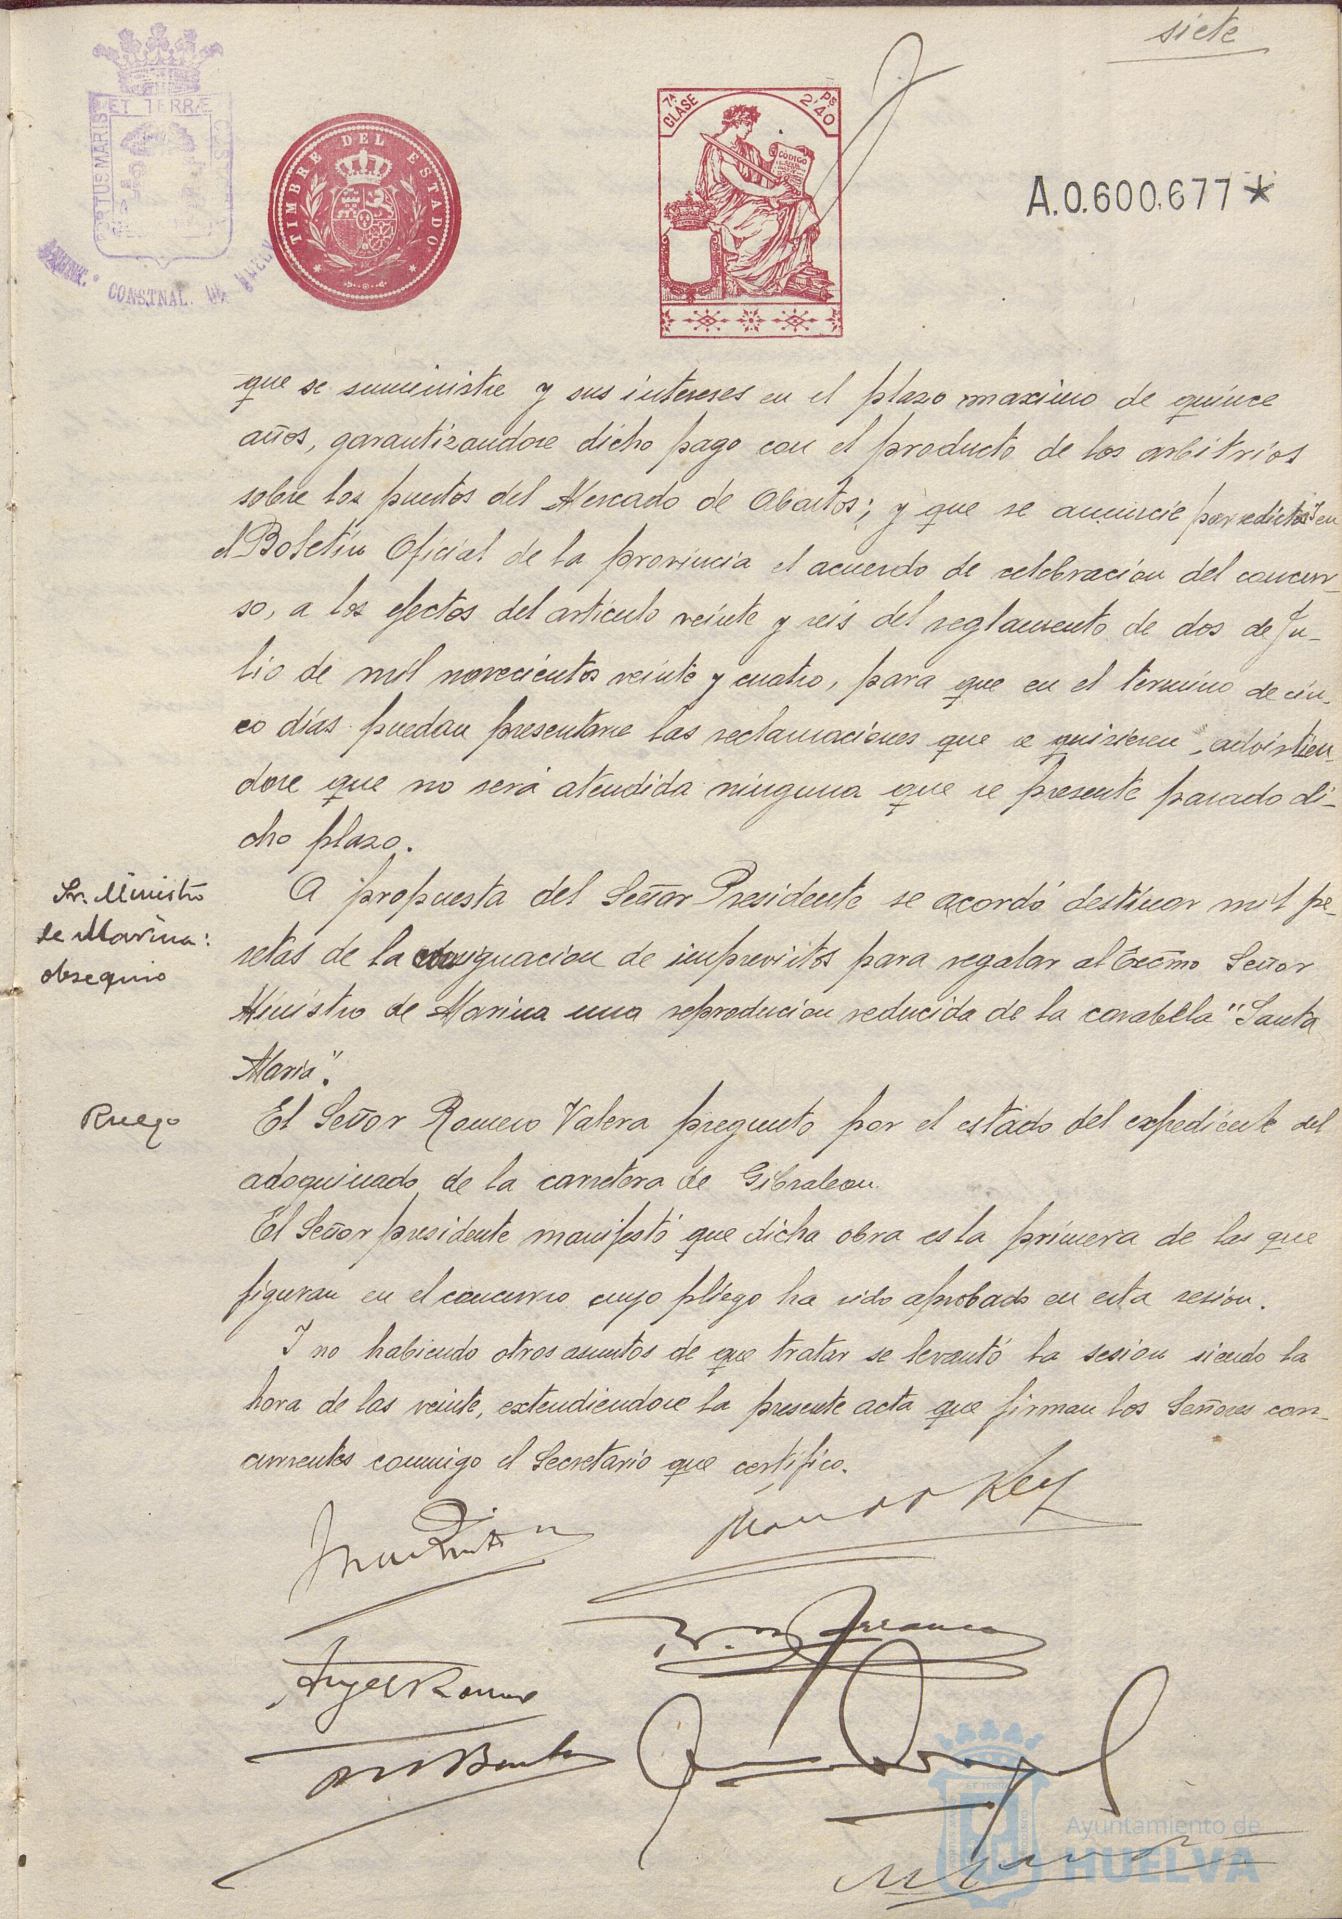 siete
ET TERRÆ
PORTUS MARIS
CUSTODIA
CONSTNAL. DE HUELVA
TIMBRE DEL ESTADO
7ª CLASE
Ps 2'40
CODIGO
A.0.600.677*
que se suministre y sus intereses en el plazo maximo de quince
años, garantizandose dicho pago con el producto de los arbitrios
sobre los puestos del Mercado de Abastos; y que se anuncie por edictos en
el Boletín Oficial de la provincia el acuerdo de celebracion del concur-
so, a los efectos del artículo veinte y seis del reglamento de dos de Ju-
lio de mil novecientos veinte y cuatro, para que en el termino de cin-
co días puedan presentarse las reclamaciones que se quisieren, advirtien-
dose que no será atendida ninguna que se presente pasado di-
cho plazo.
Sr. Ministro
de Marina:
obsequio
A propuesta del Señor Presidente se acordó destinar mil pe-
setas de la consignacion de imprevistos para regalar al Excmo Señor
Ministro de Marina una reproducion reducida de la carabela "Santa
Maria".
Ruego
El Señor Romero Valera pregunto por el estado del expediente del
adoquinado de la carretera de Gibraleon
El Señor presidente manifestó que dicha obra es la primera de las que
figuran en el concurso cuyo pliego ha sido aprobado en esta sesion.
Y no habiendo otros asuntos de que tratar se levantó la sesion siendo la
hora de las veinte, extendiendose la presente acta que firman los Señores con-
currentes conmigo el Secretario que certifico.
Angel Romero
Ayuntamiento de
HUELVA